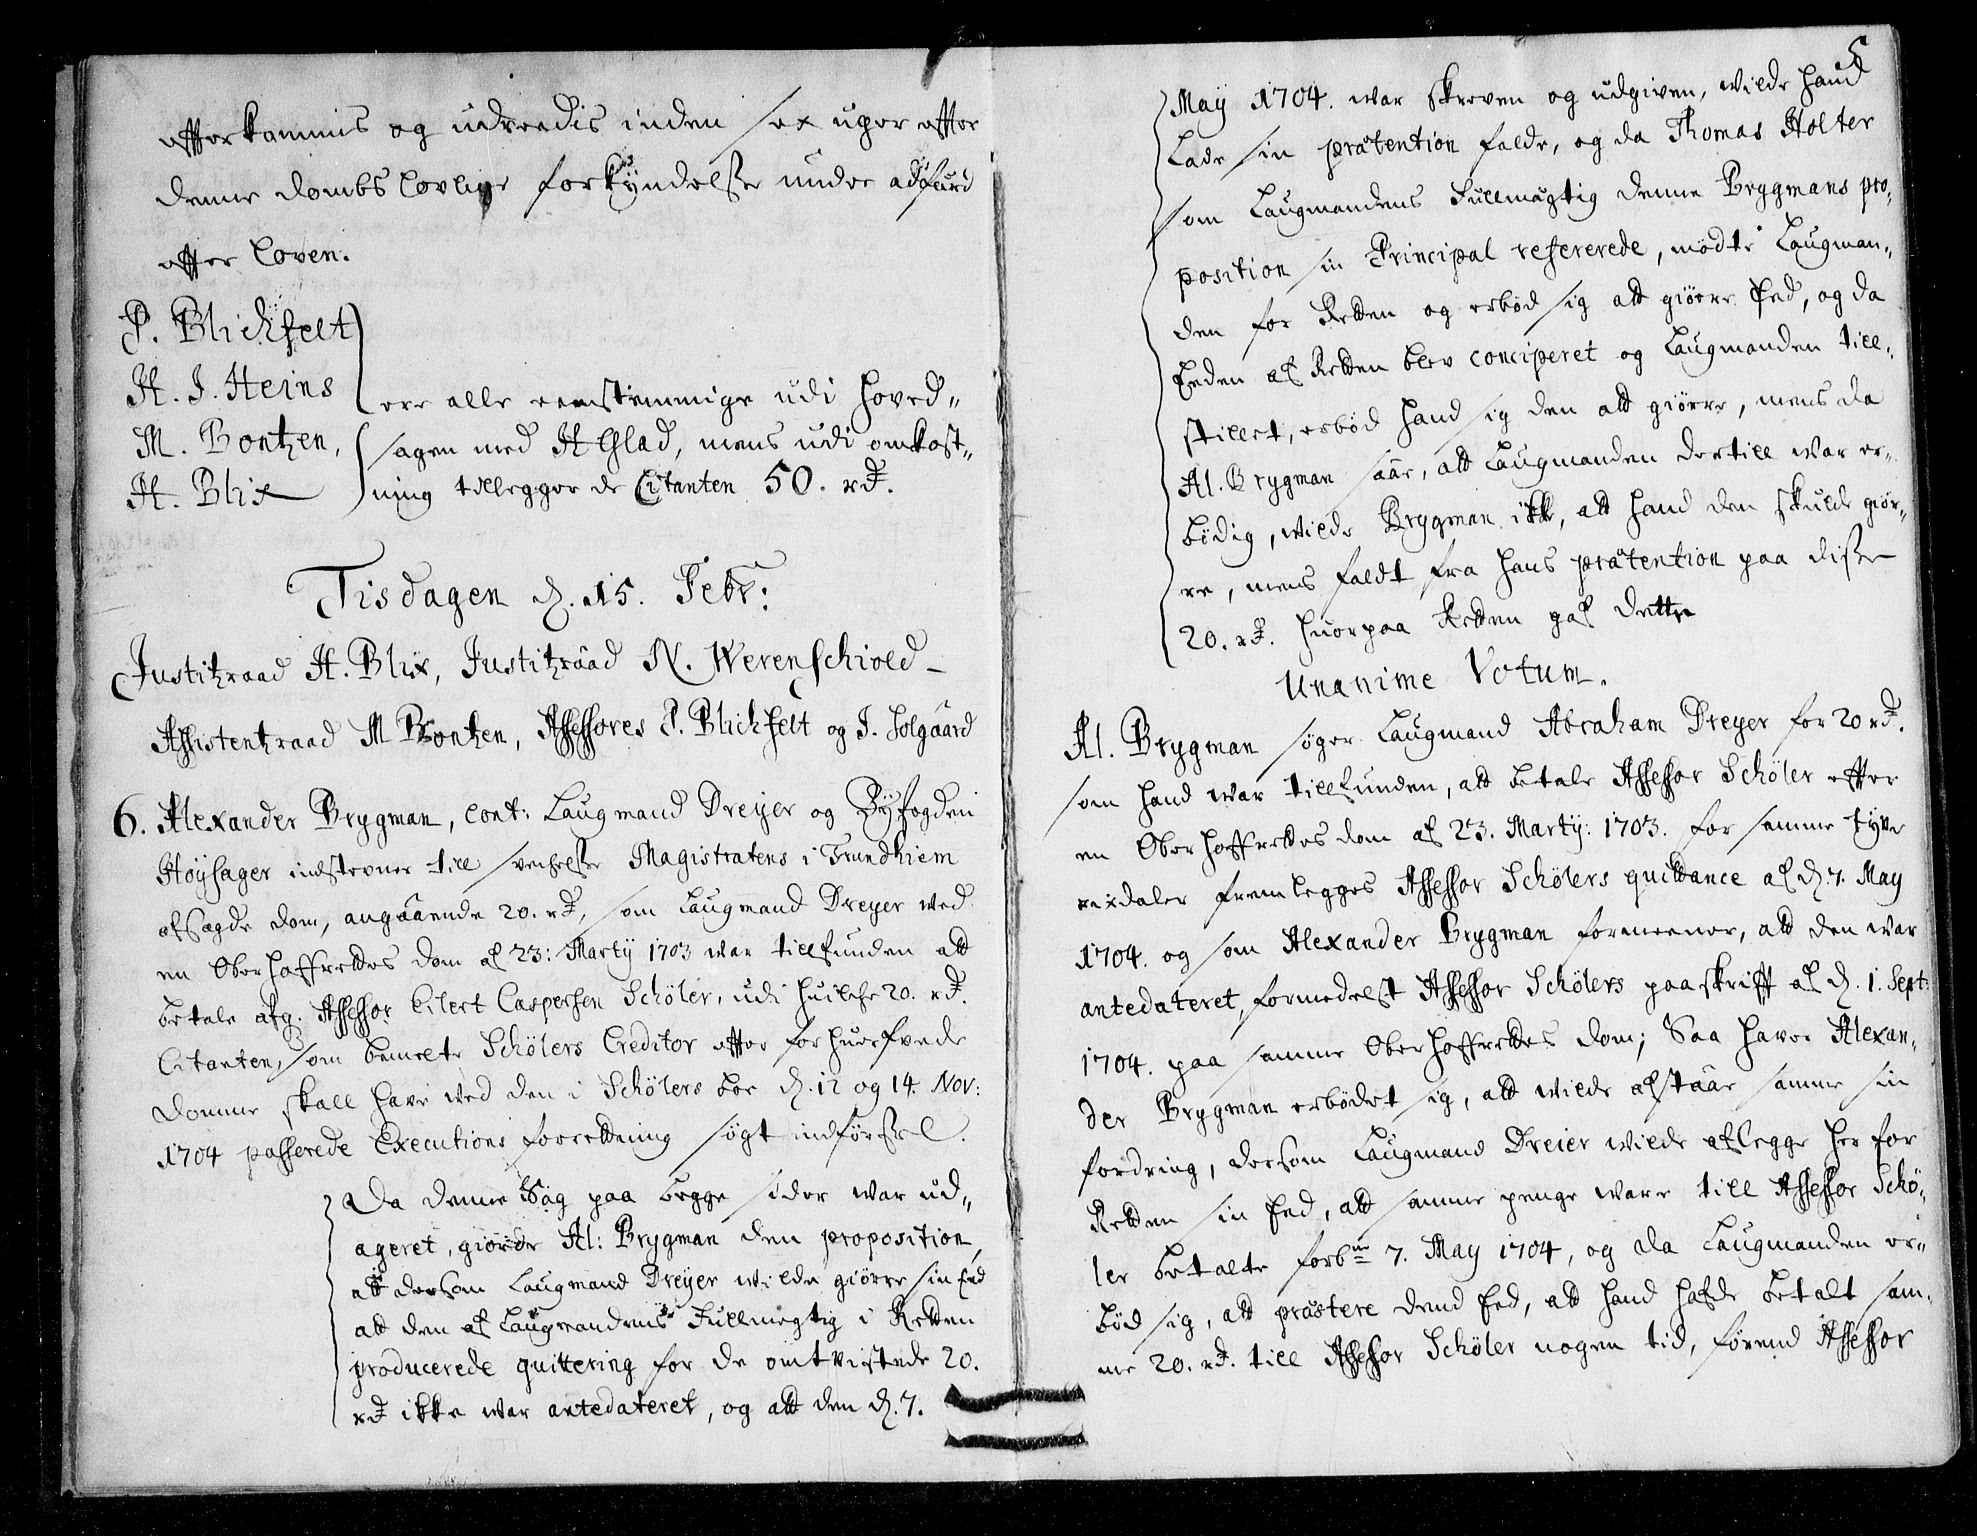 efterkommis og udreedis inden sex uger efter
denne dombs lovlige forkyndelse under adfærd
efter loven.
P. Blichfelt
H. J. Heins
ere alle eenstemmige udi hoved„
M. Bontzen,
sagen med H Glad, mens udi omkost„
H. Blix
ning tillegger de Citanten 50. rd.
Tisdagen d. 15. Febr:
Justitzraad H. Blix, Justitzraad N. Werenschiold
Assistentzraad M Bontzen, Assessores P. Blichfelt og J. Solgaard
6. Alexander Brygman, cont: Laugmand Dreyer og Byfogden
Høysager indstevner till svechelse Magistratens i Trundhiem
afsagde dom, angaaende 20. rd, som Laugmand Dreyer ved
en Oberhoffrettes dom af 23: Marty 1703 war tillfunden att
betale afg. Assessor Eilert Caspersen Schøler, udi huilche 20. rd.
Citanten, som bemelte Schølers Creditor efter forhuerfvede
domme skall have ved den i Schølers boe d. 12 og 14. Nov:
1704 passerede Executions forrettning søgt indførsel.
Da denne Sag paa begge sider war ud„
ageret, giorde Al: Brygman den proposition,
att dersom Laugmand Dreyer wilde giørre sin Eed
att den af Laugmandens Fullmegtig i Retten
producerede quittering for de omtvistede 20.
rd ikke war antedateret, og att den d. 7.
5
May 1704. war skreven og udgiven, wilde hand
lade sin prætention falde, og da Thomas Holter
som Laugmandens Fullmægtig denne Brygmans pro„
position sin Principal refererede, mødte Laugman„
den for Retten og erbød sig att giørre Eed, og da
Eeden af Retten blev conciperet og Laugmanden till„
stillet, erbød hand sig den att giørre, mens da
Al. Brygman saae, att Laugmanden dertill war er„
bødig, wilde Brygman ikke, att hand den skulde giør„
re, mens faldt fra hans prætention paa disse
20. rd. huorpaa Retten gaf dette
Unanime Votum.
Al. Brygman søger Laugmand Abraham Dreyer for 20 rd.
som hand war tillfunden, att betale Assessor Schøler efter
en Oberhoffrettes dom af 23. Marty: 1703. for samme tyve
rixdaler fremlegges Assessor Schølers quittance af d. 7. May
1704. og som Alexander Brygman formeener, att den war
antedateret, formedelst Assessor Schølers paaskrifft af d. 1. Sept:
1704. paa samme Oberhoffrettes dom; Saa haver Alexan„
der Brygman erbødet sig, att wilde afstaae samme sin
fordring, dersom Laugmand Dreier wilde aflegge her for
Retten sin Eed, att samme penge ware till Assessor Schø„
ler betalte forbne 7. May 1704, og da Laugmanden er„
bød sig, att præstere dend Eed, att hand hafde betalt sam„
me 20. rd. till Assessor Schøler nogen tid, førend Assessor